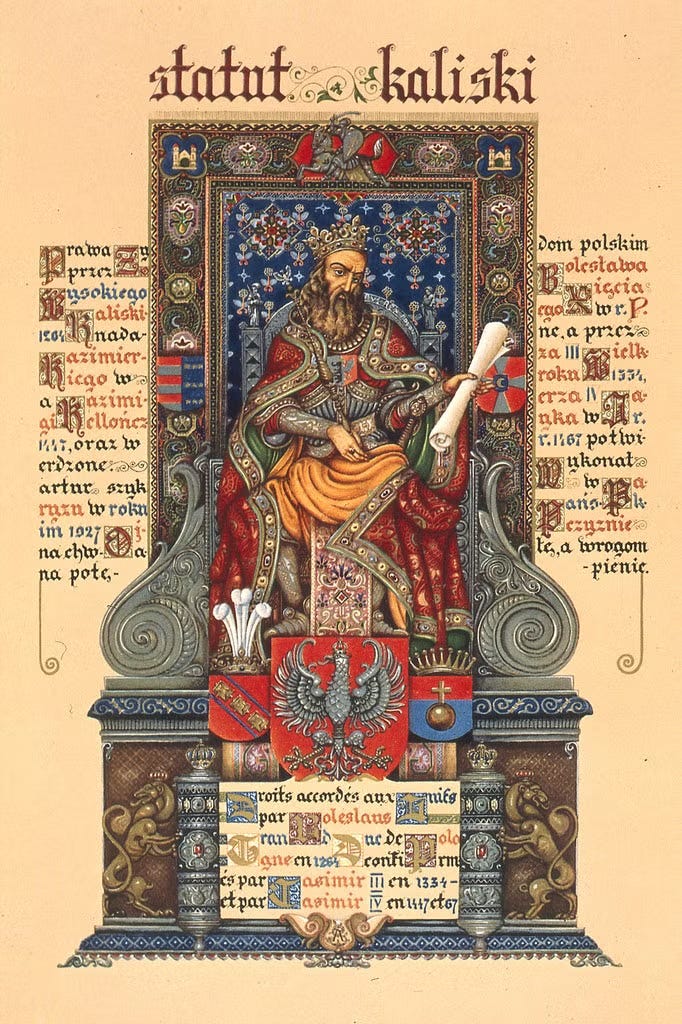 statut kaliski
Prawa Zy dom polskim
przez Bolesława
Wysokiego Xięcia
Kaliski ego w r.
1264 nada- ne, a przez
Kazimier- za III Wielk
Kiego w roku 1334,
a Kazimi erza IV Ja
giellończ yka w r.
1447, oraz w r. 1467 potwi
erdzone
artur szyk Wykonał
w Pa
ryzu w roku Pańs k
im 1927 Oj czyznie
na chwa łę, a wrogom
na potę,- pienie.
Droits accordés aux Juifs
par Boleslaus
Grand Duc de Polo
gne en 1264 Confirm
és par Casimir III en 1334-
et par Casimir IV en 1447 et 67